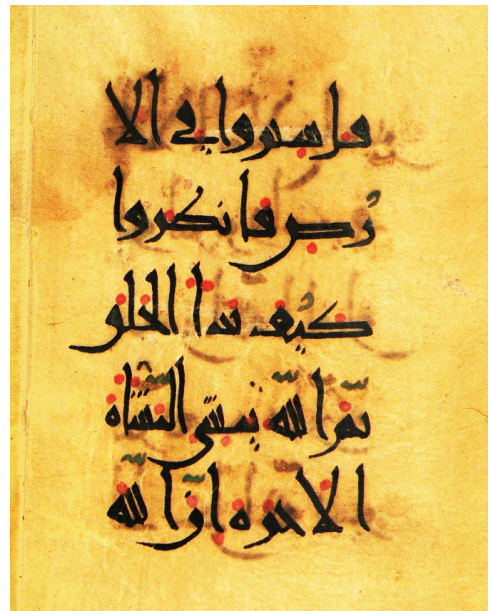 قل سيروا في الا
رض فانظروا
كيف بدأ الخلق
ثم الله ينشئ النشأة
الاخرة ان الله